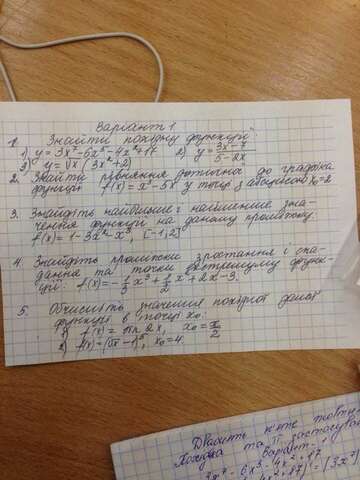 Варіант 1
1. Знайти похідну функції:
1) y = 3x⁷ - 6x⁵ - 4x² + 17   2) y = (3x - 7)/(5 - 2x)
3) y = √x (3x² + 2)
2. Знайти рівняння дотичної до графіка
функції f(x) = x³ - 5x у точці з абсцисою x₀ = 2
3. Знайдіть найбільше і найменше зна-
чення функції на даному проміжку:
f(x) = 1 - 3x² - x³, [-1; 2]
4. Знайдіть проміжки зростання і спа-
дання та точки екстремуму функ-
ції: f(x) = -⅓x³ + ½x² + 2x - 3.
5. Обчисліть значення похідної даної
функції в точці x₀:
1) f(x) = sin 2x, x₀ = π/2
2) f(x) = (√x - 1)⁵, x₀ = 4.
Похідна та її застосування
Варіант